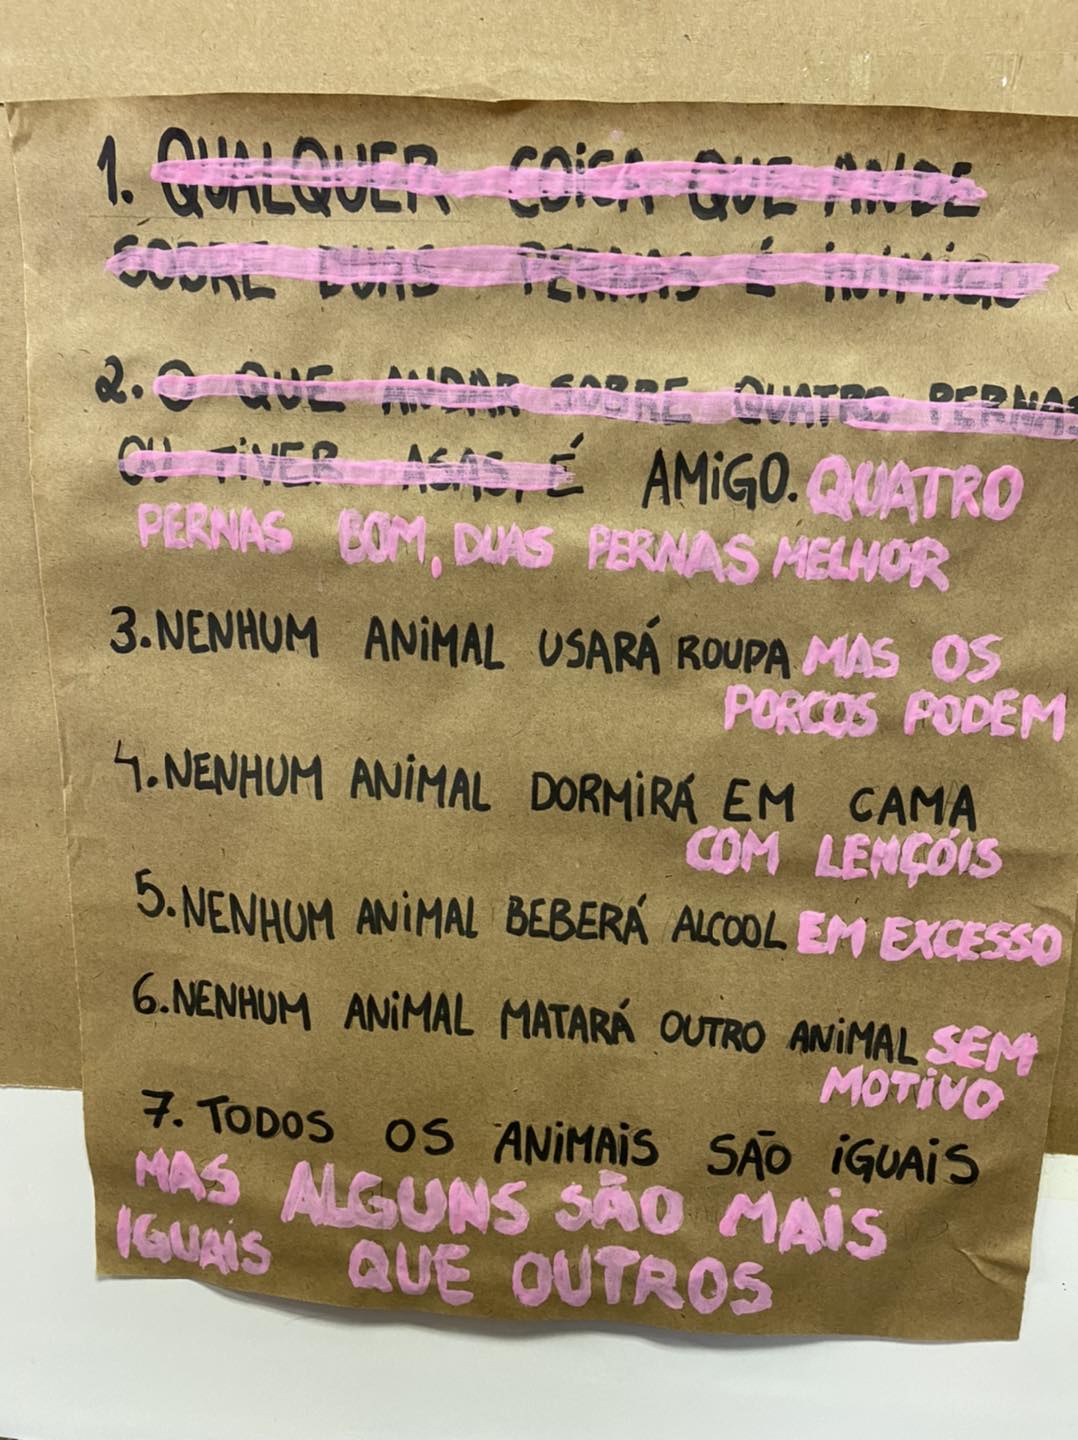 1. QUALQUER COISA QUE ANDE
SOBRE DUAS PERNAS É INIMIGO
2. O QUE ANDAR SOBRE QUATRO PERNAS
OU TIVER ASAS, É AMIGO. QUATRO
PERNAS BOM, DUAS PERNAS MELHOR
3. NENHUM ANIMAL USARÁ ROUPA MAS OS
PORCOS PODEM
4. NENHUM ANIMAL DORMIRÁ EM CAMA
COM LENÇÓIS
5. NENHUM ANIMAL BEBERÁ ALCOOL EM EXCESSO
6. NENHUM ANIMAL MATARÁ OUTRO ANIMAL SEM
MOTIVO
7. TODOS OS ANIMAIS SÃO IGUAIS
MAS ALGUNS SÃO MAIS
IGUAIS QUE OUTROS